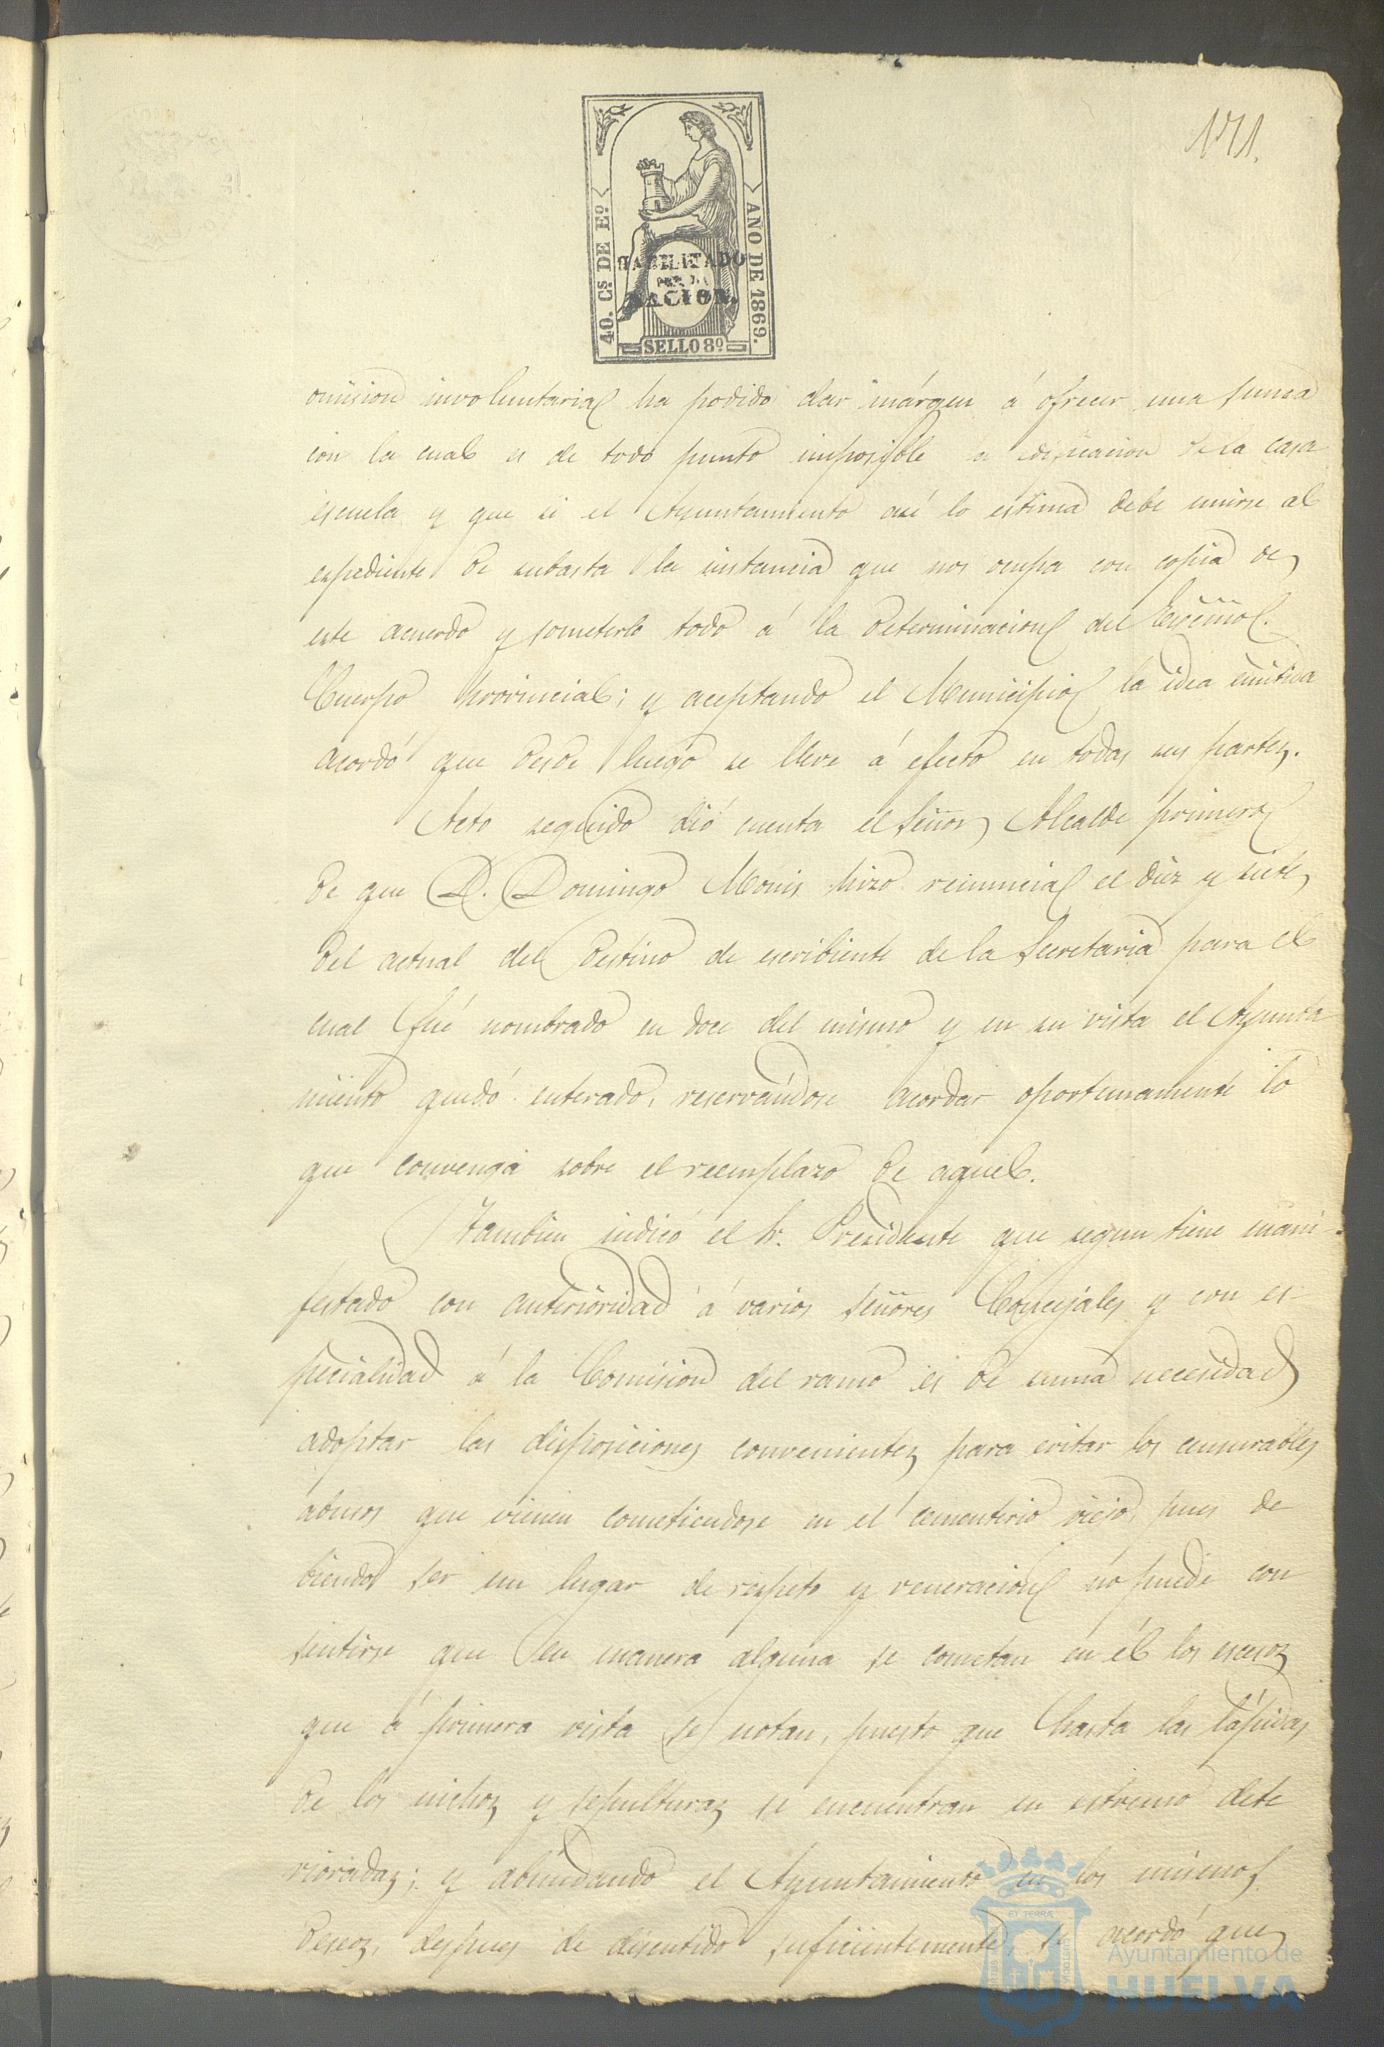 171.
40. Cs. DE Eº.
AÑO DE 1869.
HABILITADO
POR LA
NACION.
SELLO 8º
omision involuntaria ha podido dar márgen á ofrecer una suma
con la cual es de todo punto imposible la edificacion de la casa
escuela y que si el Ayuntamiento asi lo estima debe unirse al
expediente de subasta la instancia que nos ocupa con copia de
este acuerdo y someterlo todo á la determinacion del Escmo.
Cuerpo Provincial; y aceptando el Municipio la idea emitida
acordó que desde luego se lleve á efecto en todas sus partes.
Acto seguido dió cuenta el Señor Alcalde primero
de que D. Domingo Monis hizo renuncia el diez y siete
del actual del destino de escribiente de la Secretaria para el
cual fué nombrado en doce del mismo y en su vista el Ayunta
miento quedó enterado, reservándose acordar oportunamente lo
que convenga sobre el reemplazo de aquel.
Tambien indicó el Sr. Presidente que segun tiene mani-
festado con anterioridad á varios Señores Concejales y con es-
pecialidad á la Comision del ramo es de suma necesidad
adoptar las disposiciones convenientes para evitar los censurables
abusos que vienen cometiendose en el cementerio viejo, pues de
biendo ser un lugar de respeto y veneracion no puede con
sentirse que en manera alguna se cometan en él los escesos
que á primera vista se notan, puesto que hasta las lápidas
de los nichos y sepulturas se encuentran en estremo dete
rioradas; y abundando el Ayuntamiento en los mismos
deseos, despues de discutido suficientemente, se acordó que
Ayuntamiento de
HUELVA